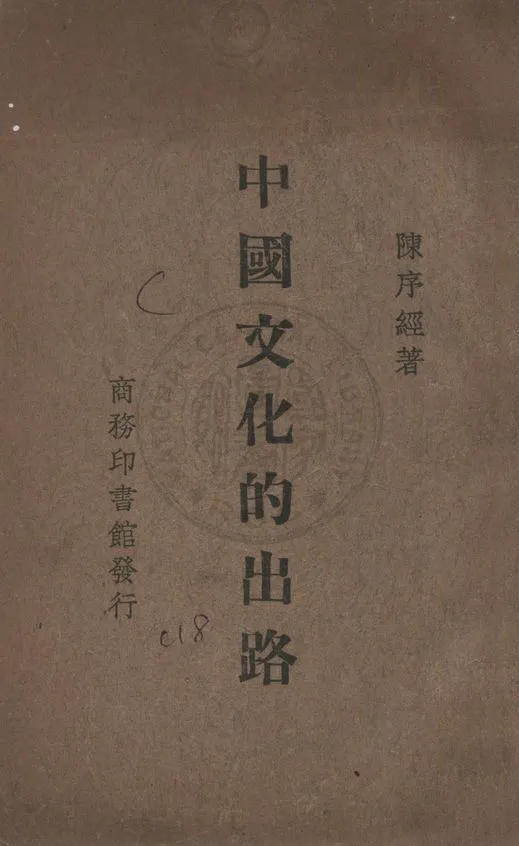 陳序經著
中國文化的出路
商務印書館發行
C
c18